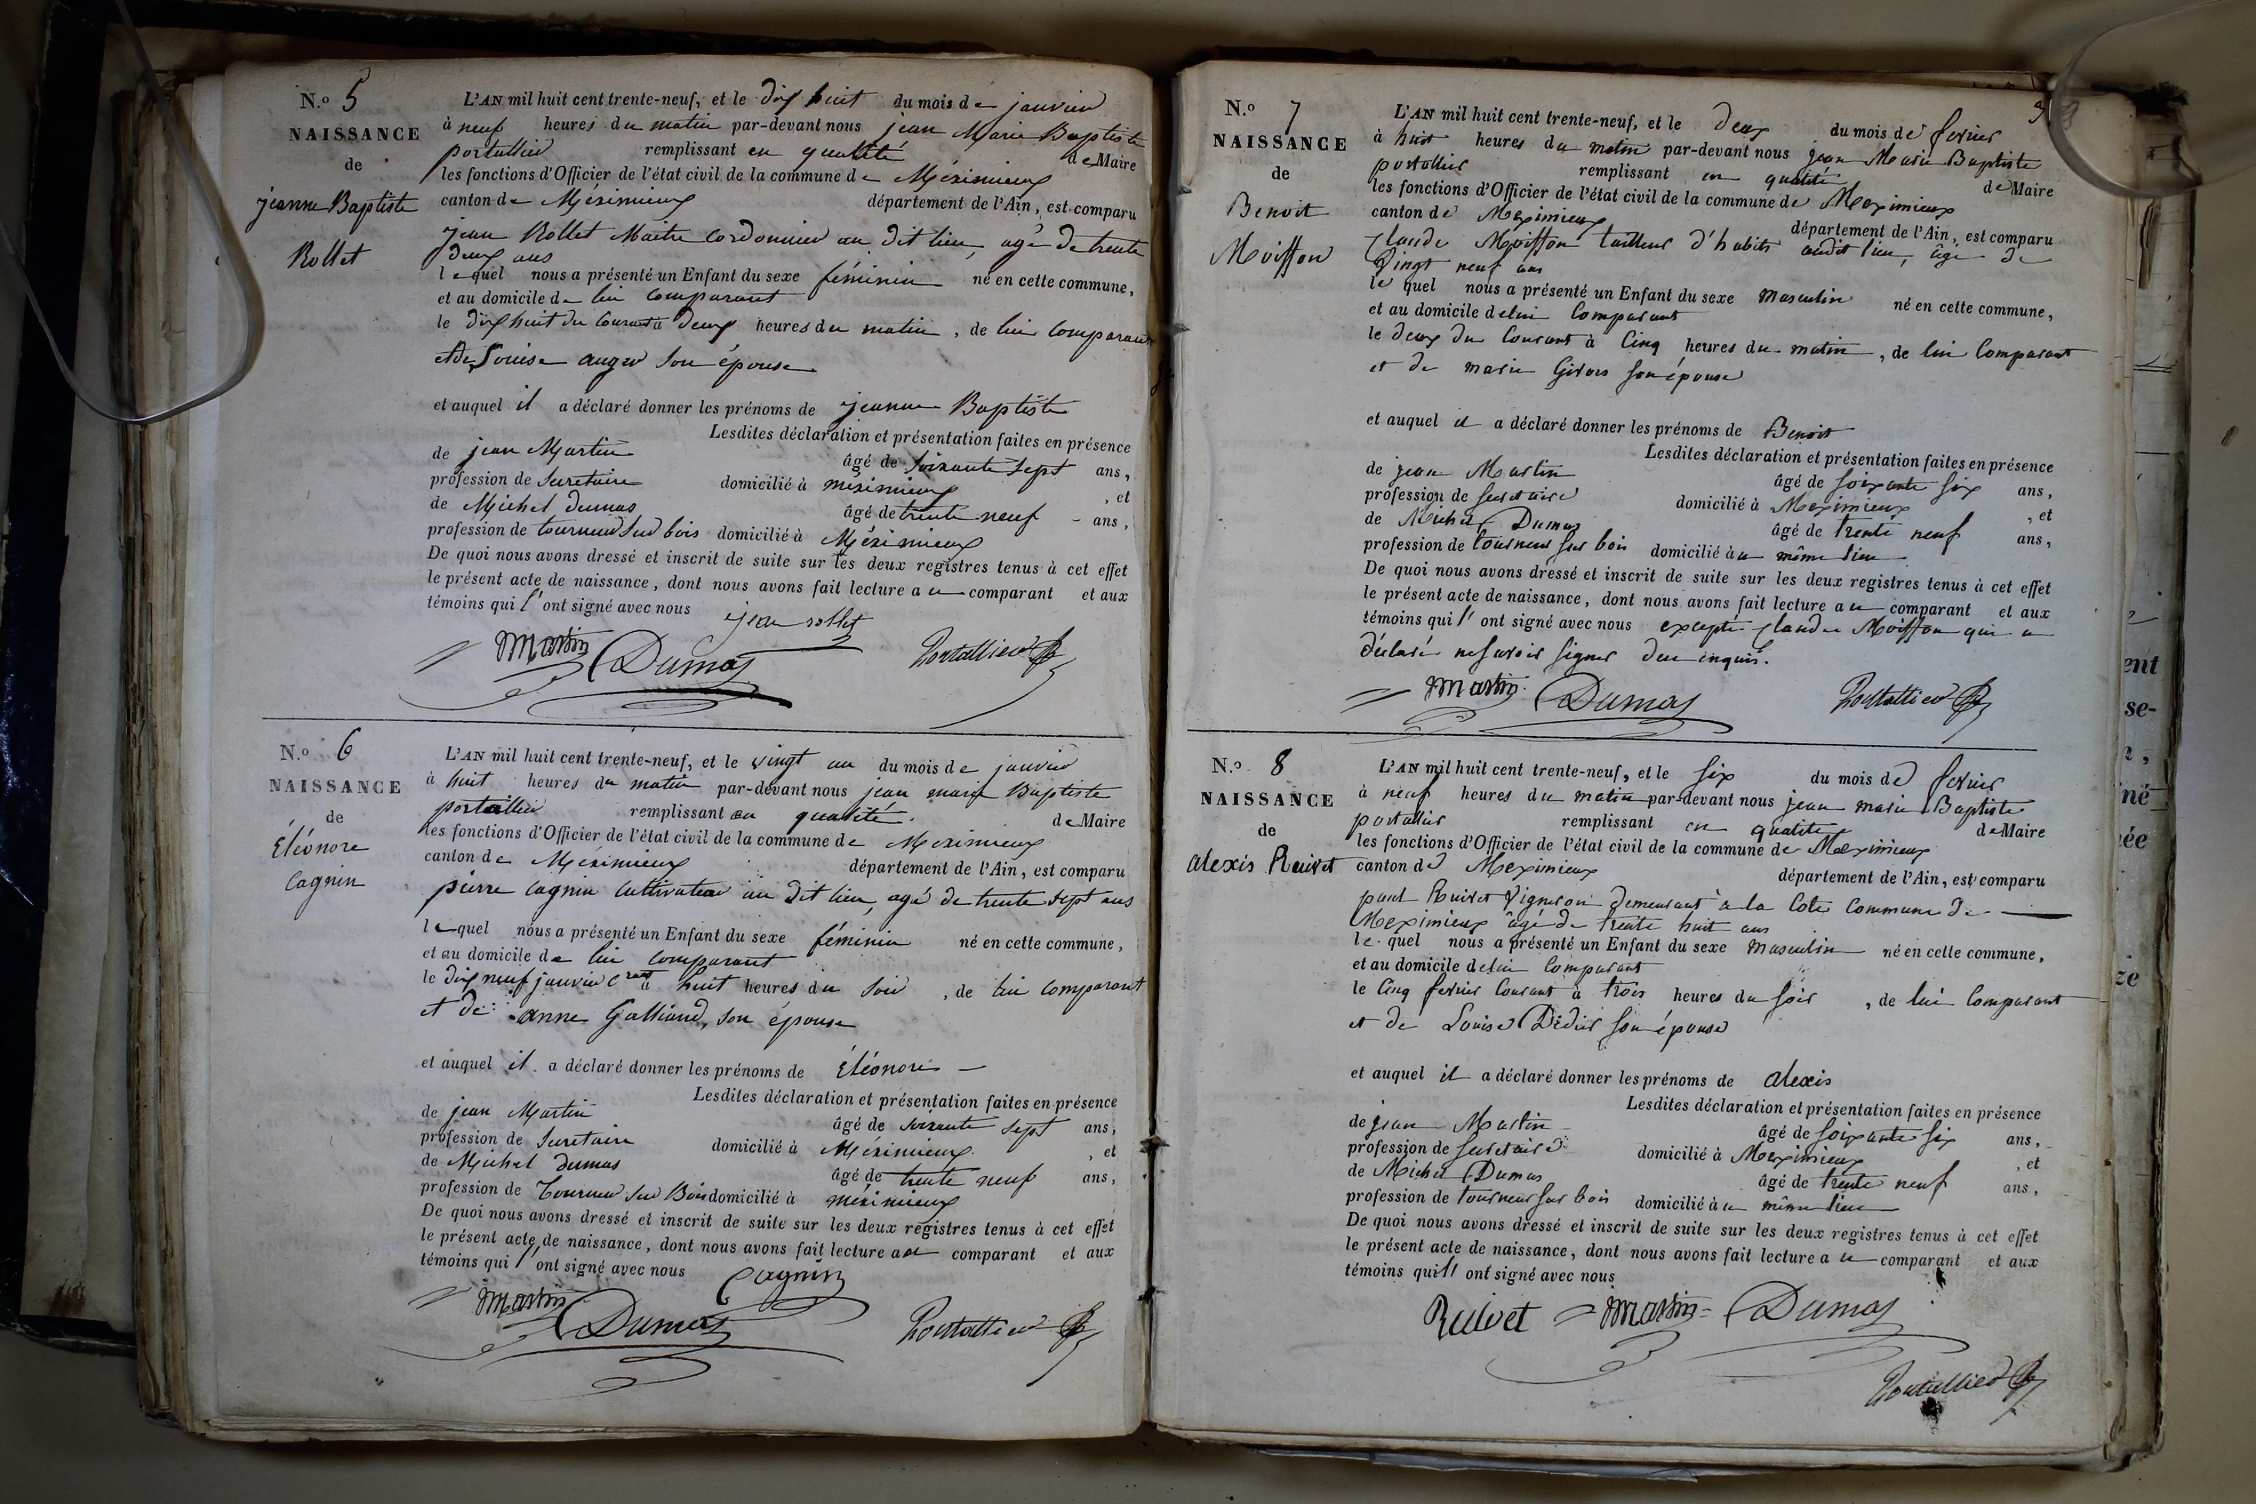 N.o 5
NAISSANCE
de
jeanne Baptiste
Rollet
L'AN mil huit cent trente-neuf, et le dix huit du mois de janvier
à neuf heures du matin par-devant nous jean Marie Baptiste
portallier remplissant en qualité de Maire
les fonctions d'Officier de l'état civil de la commune de Méximieux
canton de Méximieux département de l'Ain, est comparu
jean Rollet Maitre cordonnier au dit lieu, agé de trente
deux ans
lequel nous a présenté un Enfant du sexe féminin né en cette commune,
et au domicile de lui comparant
le dix huit du courant à deux heures du matin, de lui comparant
et de Louise auger son épouse
et auquel il a déclaré donner les prénoms de jeanne Baptiste
Lesdites déclaration et présentation faites en présence
de jean Martin âgé de soixante sept ans,
profession de secretaire domicilié à meximieux, et
de Michel dumas âgé de trente neuf ans,
profession de tourneur sur bois domicilié à Méximieux
De quoi nous avons dressé et inscrit de suite sur les deux registres tenus à cet effet
le présent acte de naissance, dont nous avons fait lecture au comparant et aux
témoins qui l'ont signé avec nous jean rollet
Martin Dumas Portallier
N.o 6
NAISSANCE
de
Éléonore
Cagnin
L'AN mil huit cent trente-neuf, et le vingt un du mois de janvier
à huit heures du matin par-devant nous jean marie Baptiste
portallier remplissant en qualité de Maire
les fonctions d'Officier de l'état civil de la commune de Meximieux
canton de Méximieux département de l'Ain, est comparu
pierre Cagnin Cultivateur au dit lieu, agé de trente sept ans
lequel nous a présenté un Enfant du sexe féminin né en cette commune,
et au domicile de lui comparant
le dix neuf janvier crant à huit heures du soir, de lui comparant
et de anne Galliand, son épouse
et auquel il a déclaré donner les prénoms de Éléonore
Lesdites déclaration et présentation faites en présence
de jean Martin âgé de soixante sept ans,
profession de Secretaire domicilié à Méximieux, et
de Michel dumas âgé de trente neuf ans,
profession de Tourneur sur Bois domicilié à méximieux
De quoi nous avons dressé et inscrit de suite sur les deux registres tenus à cet effet
le présent acte de naissance, dont nous avons fait lecture au comparant et aux
témoins qui l'ont signé avec nous Cagnin
Martin Dumas Portallier
N.o 7
NAISSANCE
de
Benoit
Moiffon
L'AN mil huit cent trente-neuf, et le deux du mois de fevrier
à huit heures du matin par-devant nous jean Marie Baptiste
portallier remplissant en qualité de Maire
les fonctions d'Officier de l'état civil de la commune de Meximieux
canton de Meximieux département de l'Ain, est comparu
Claude Moiffon tailleur d'habits audit lieu, âgé de
Vingt neuf ans
lequel nous a présenté un Enfant du sexe masculin né en cette commune,
et au domicile de lui Comparant
le deux du Courant à Cinq heures du matin, de lui Comparant
et de marie Girois son épouse
et auquel il a déclaré donner les prénoms de Benoit
Lesdites déclaration et présentation faites en présence
de jean Martin âgé de soixante six ans,
profession de secretaire domicilié à Meximieux, et
de Michel Dumas âgé de trente neuf ans,
profession de tourneur sur bois domicilié au même lieu
De quoi nous avons dressé et inscrit de suite sur les deux registres tenus à cet effet
le présent acte de naissance, dont nous avons fait lecture au comparant et aux
témoins qui l'ont signé avec nous excepté Claude Moiffon qui a
déclaré ne savoir signer due enquis.
Martin Dumas Portallier
N.o 8
NAISSANCE
de
alexis Ruivet
L'AN mil huit cent trente-neuf, et le six du mois de fevrier
à neuf heures du matin par-devant nous jean marie Baptiste
portallier remplissant en qualité de Maire
les fonctions d'Officier de l'état civil de la commune de Meximieux
canton de Meximieux département de l'Ain, est comparu
paul Ruivet Vigneron demeurant à la Cote Commune de
Meximieux âgé de trente huit ans
lequel nous a présenté un Enfant du sexe masculin né en cette commune,
et au domicile de lui Comparant
le Cinq fevrier Courant à trois heures du soir, de lui Comparant
et de Louise Didier son épouse
et auquel il a déclaré donner les prénoms de alexis
Lesdites déclaration et présentation faites en présence
de jean Martin âgé de soixante six ans,
profession de secretaire domicilié à Meximieux, et
de Michel Dumas âgé de trente neuf ans,
profession de tourneur sur bois domicilié au même lieu
De quoi nous avons dressé et inscrit de suite sur les deux registres tenus à cet effet
le présent acte de naissance, dont nous avons fait lecture au comparant et aux
témoins qui l'ont signé avec nous
Ruivet Martin Dumas
Portallier
ent
se-
né
ée
ze